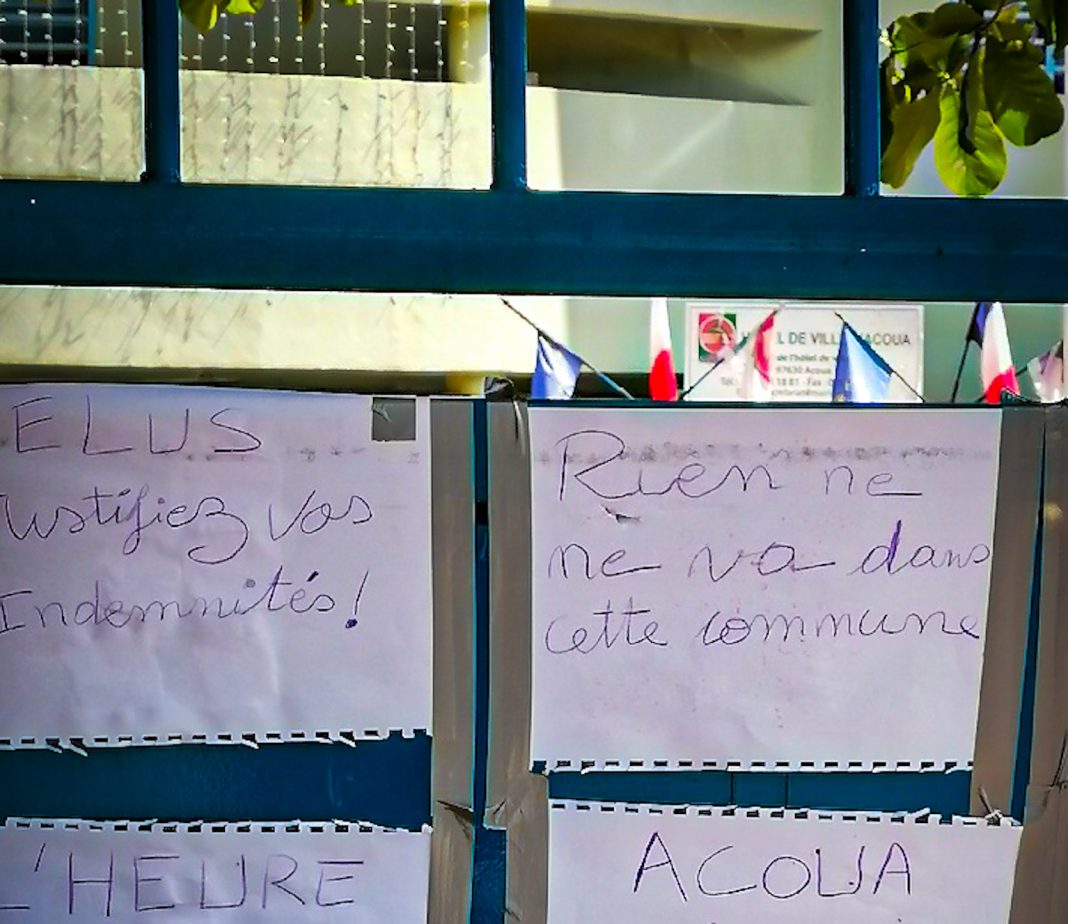 L DE VILL
ACOUA
de l'hôtel de
97630 Acoua
18 81 - Fax
ELUS
Justifiez vos
Indemnités!
Rien ne
ne va dans
cette commune
L'HEURE
ACOUA